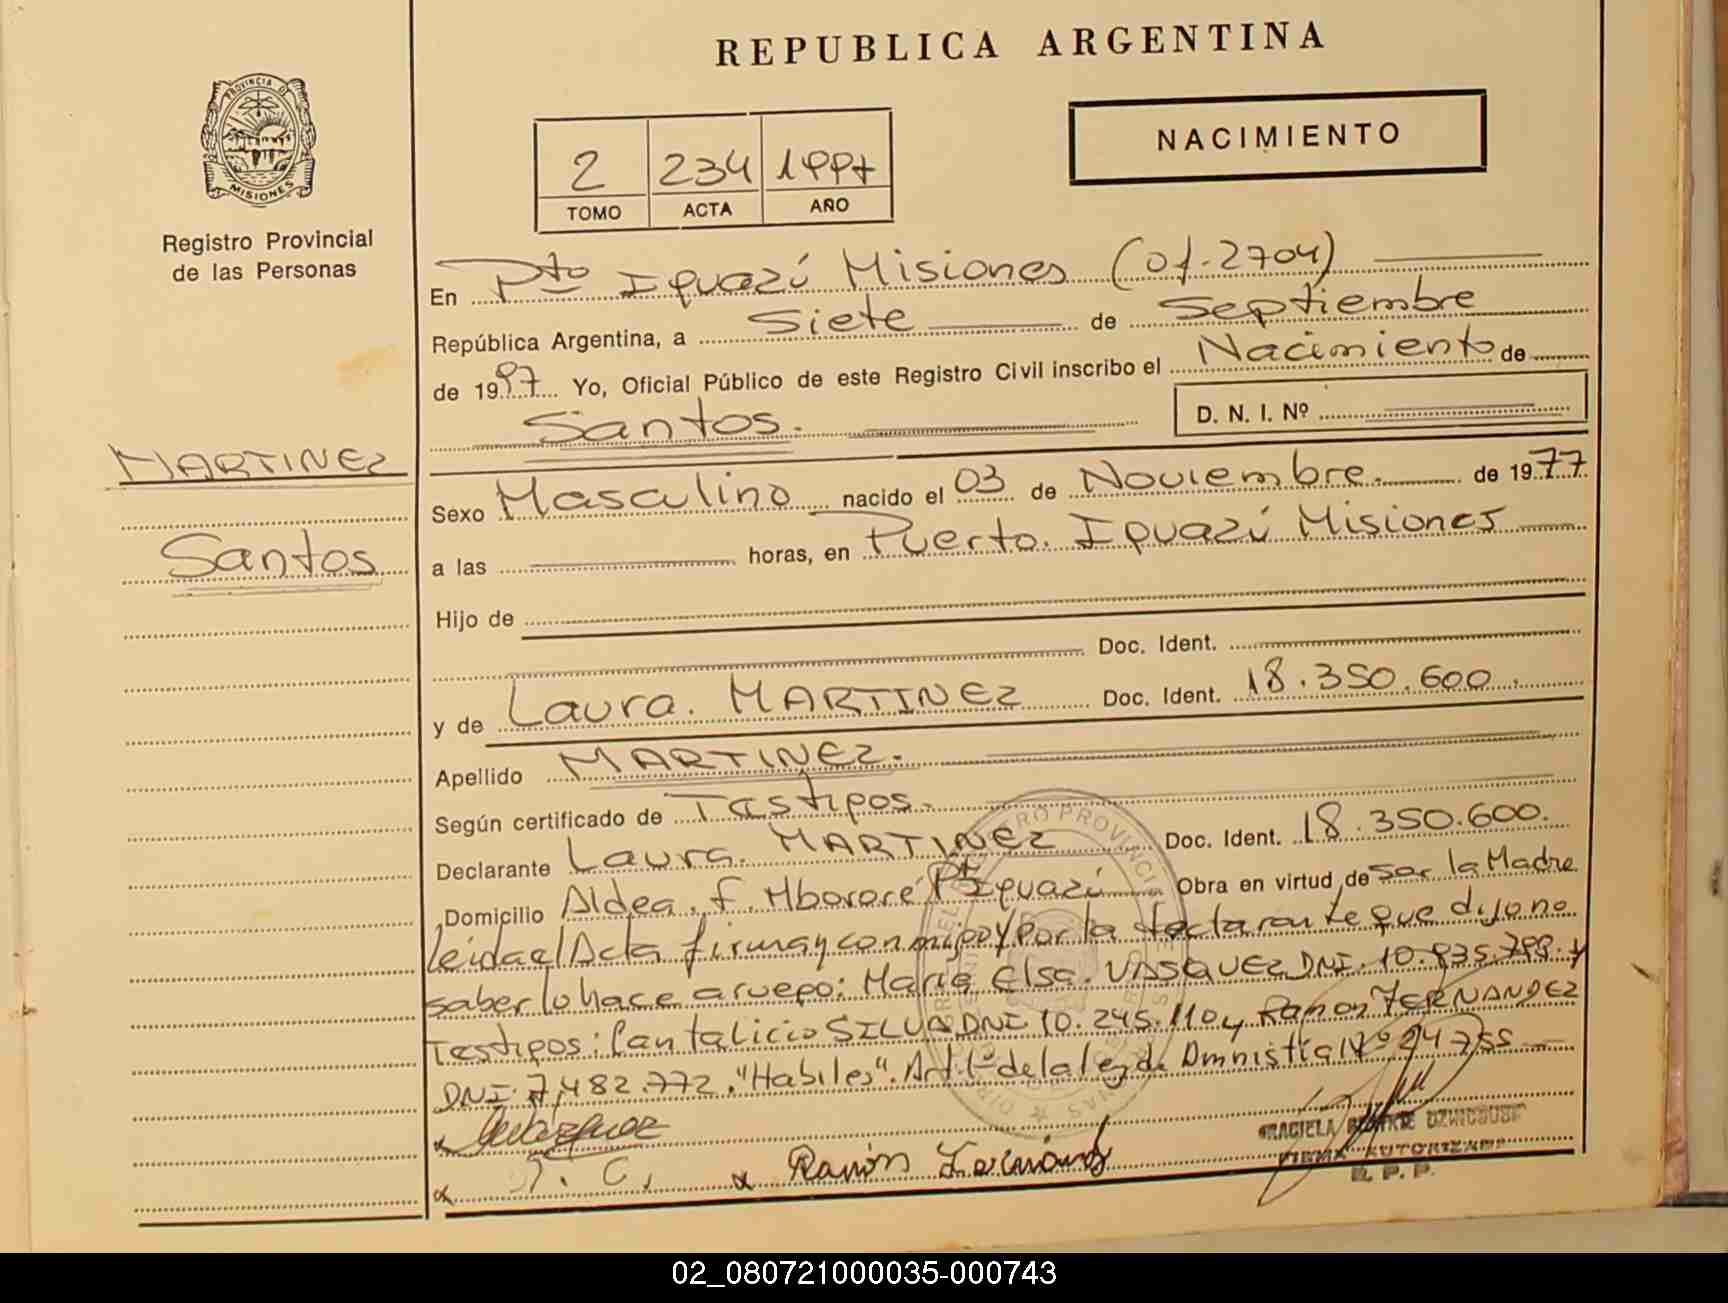 REPUBLICA ARGENTINA
PROVINCIA DE
MISIONES
Registro Provincial
de las Personas
NACIMIENTO
2 234 1997
TOMO ACTA AÑO
En Pto Iguazú Misiones (Of. 2704)
República Argentina, a Siete de Septiembre
de 1997 Yo, Oficial Público de este Registro Civil inscribo el Nacimiento de
Santos.
D. N. I. Nº
MARTINEZ
Santos
Sexo Masculino nacido el 03 de Noviembre. de 1977
a las horas, en Puerto. Iguazú Misiones
Hijo de
Doc. Ident.
y de Laura. MARTINEZ Doc. Ident. 18.350.600.
Apellido MARTINEZ.
Según certificado de Testigos.
Declarante Laura. MARTINEZ Doc. Ident. 18.350.600.
Domicilio Aldea. f. Mbororé Pto Iguazú Obra en virtud de ser la Madre
leida el Acta firman conmigo y por la declarante que dijo no
saber lo hace a ruego: María Elsa. VASQUEZ DNI. 10.835.799. y
Testigos: Cantalicio SILVA DNI 10.245.110 y Ramon FERNANDEZ
DNI. 7,482.772. "Habiles". Art 1º de la ley de Amnistía Nº 24755
Ramón
GRACIELA
FIRMA AUTORIZADA
R. P. P.
02_080721000035-000743